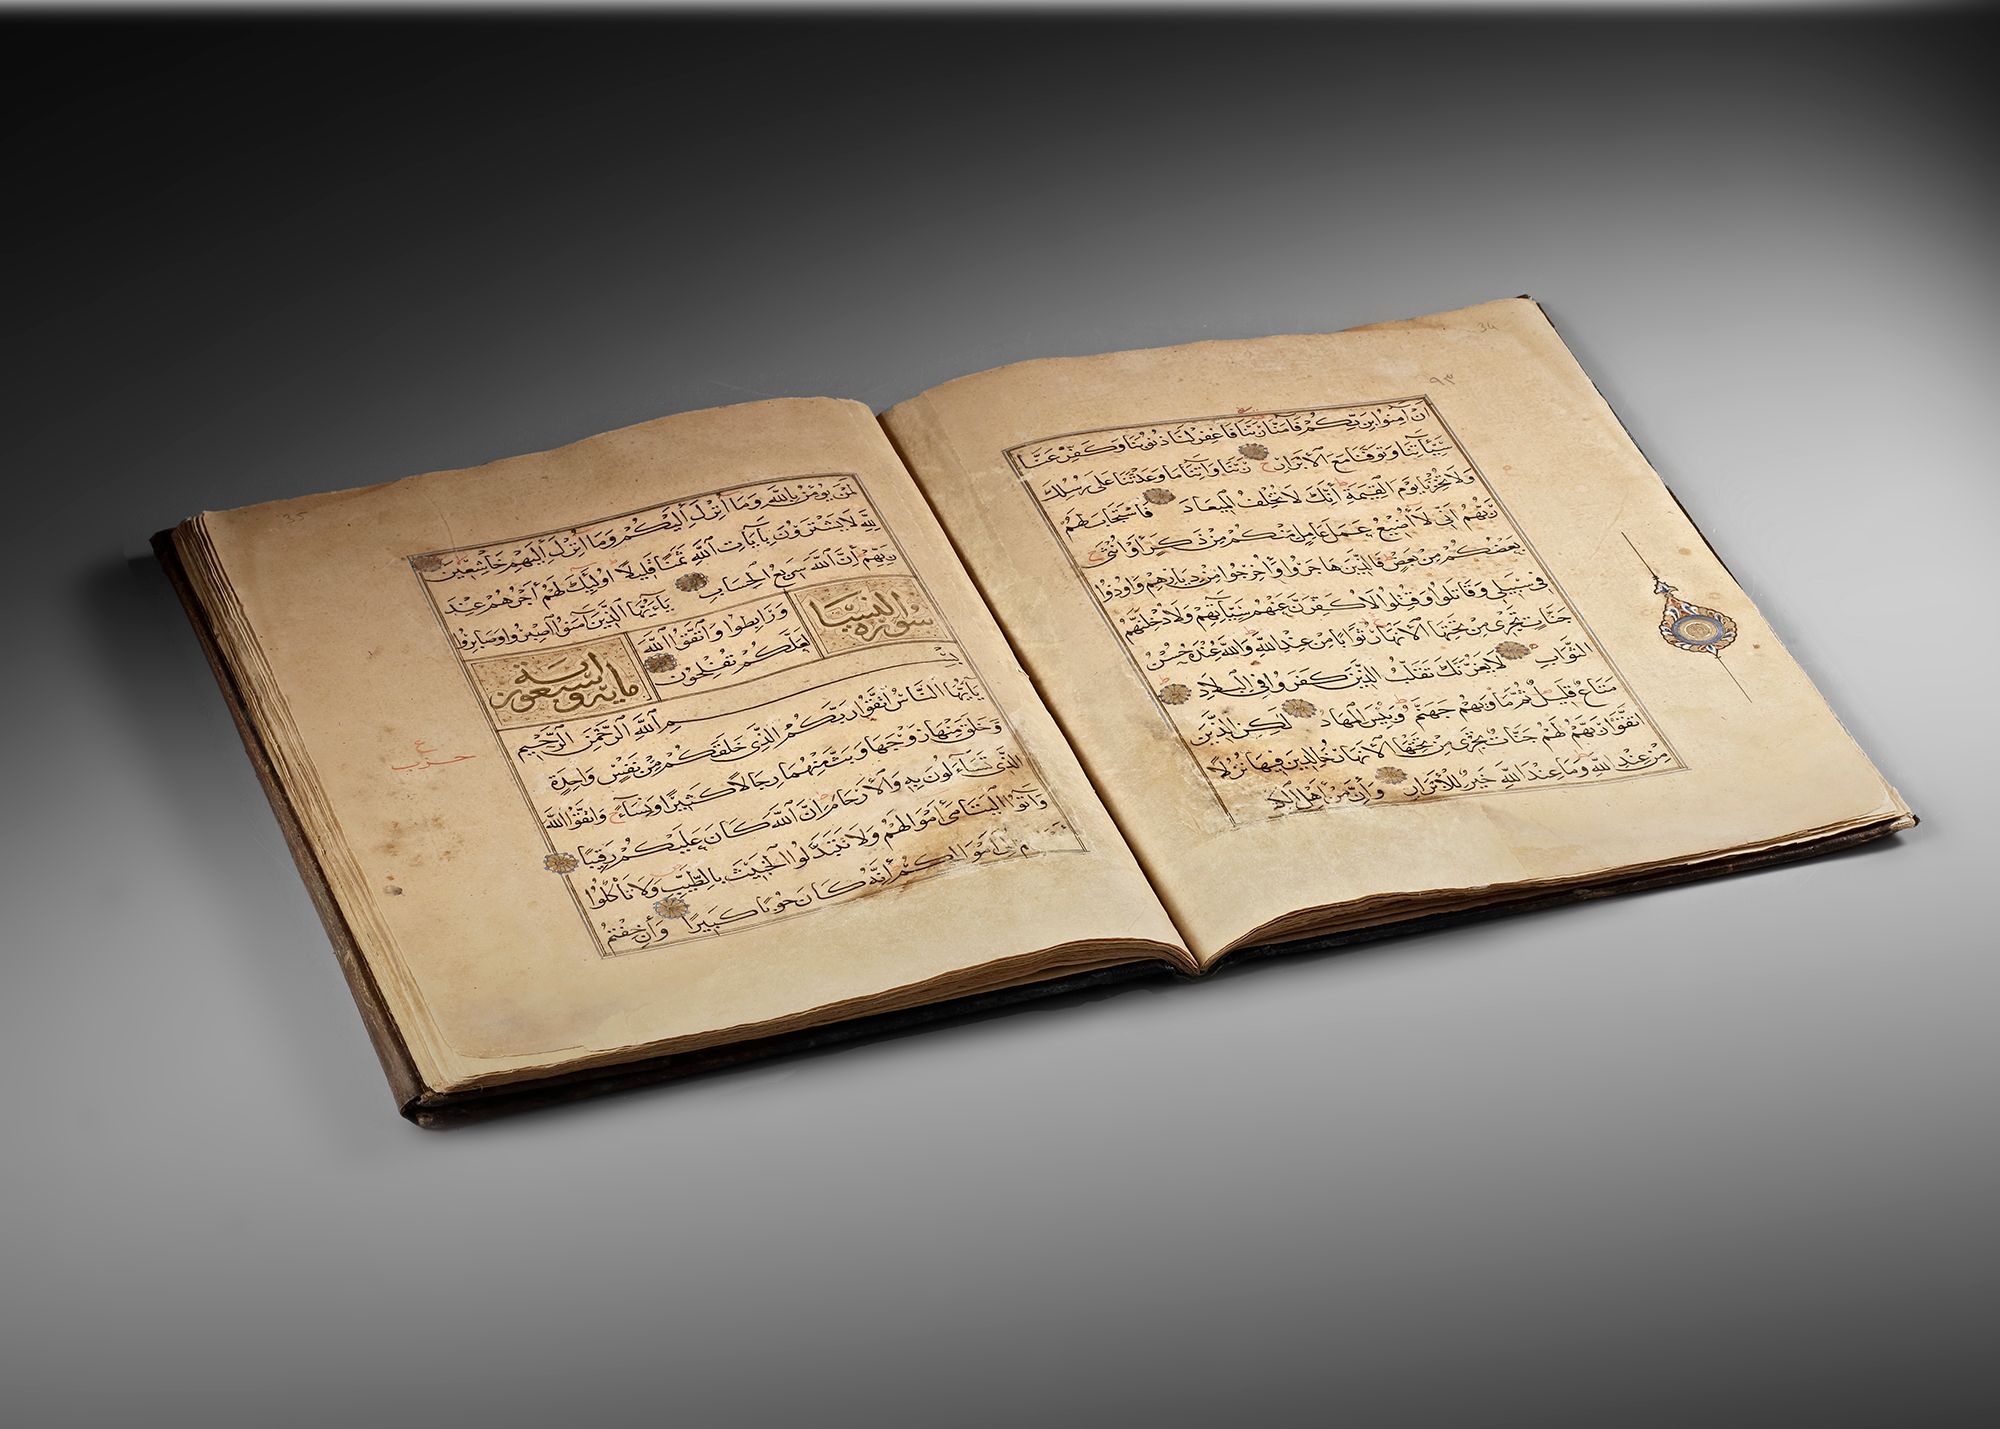 34
٩٣
أَنْ آمِنُوا بِرَبِّكُمْ فَآمَنَّا رَبَّنَا فَاغْفِرْ لَنَا ذُنُوبَنَا وَكَفِّرْ عَنَّا
سَيِّئَاتِنَا وَتَوَفَّنَا مَعَ الْأَبْرَارِ رَبَّنَا وَآتِنَا مَا وَعَدْتَنَا عَلَى رُسُلِكَ
وَلَا تُخْزِنَا يَوْمَ الْقِيَمَةِ إِنَّكَ لَا تُخْلِفُ الْمِيعَادَ فَاسْتَجَابَ لَهُمْ
رَبُّهُمْ أَنِّي لَا أُضِيعُ عَمَلَ عَامِلٍ مِنْكُمْ مِنْ ذَكَرٍ أَوْ أُنْثَى
بَعْضُكُمْ مِنْ بَعْضٍ فَالَّذِينَ هَاجَرُوا وَأُخْرِجُوا مِنْ دِيَارِهِمْ وَأُوذُوا
فِي سَبِيلِي وَقَاتَلُوا وَقُتِلُوا لَأُكَفِّرَنَّ عَنْهُمْ سَيِّئَاتِهِمْ وَلَأُدْخِلَنَّهُمْ
جَنَّاتٍ تَجْرِي مِنْ تَحْتِهَا الْأَنْهَارُ ثَوَابًا مِنْ عِنْدِ اللَّهِ وَاللَّهُ عِنْدَهُ حُسْنُ
الثَّوَابِ لَا يَغُرَّنَّكَ تَقَلُّبُ الَّذِينَ كَفَرُوا فِي الْبِلَادِ
مَتَاعٌ قَلِيلٌ ثُمَّ مَأْوَاهُمْ جَهَنَّمُ وَبِئْسَ الْمِهَادُ لَكِنِ الَّذِينَ
اتَّقَوْا رَبَّهُمْ لَهُمْ جَنَّاتٌ تَجْرِي مِنْ تَحْتِهَا الْأَنْهَارُ خَالِدِينَ فِيهَا نُزُلًا
مِنْ عِنْدِ اللَّهِ وَمَا عِنْدَ اللَّهِ خَيْرٌ لِلْأَبْرَارِ وَإِنَّ مِنْ أَهْلِ الْكِتَابِ
35
لَمَنْ يُؤْمِنُ بِاللَّهِ وَمَا أُنْزِلَ إِلَيْكُمْ وَمَا أُنْزِلَ إِلَيْهِمْ خَاشِعِينَ
لِلَّهِ لَا يَشْتَرُونَ بِآيَاتِ اللَّهِ ثَمَنًا قَلِيلًا أُولَئِكَ لَهُمْ أَجْرُهُمْ عِنْدَ
رَبِّهِمْ إِنَّ اللَّهَ سَرِيعُ الْحِسَابِ يَا أَيُّهَا الَّذِينَ آمَنُوا اصْبِرُوا وَصَابِرُوا
وَرَابِطُوا وَاتَّقُوا اللَّهَ
لَعَلَّكُمْ تُفْلِحُونَ
سورة النساء
ماية وسبعون اية
بِسْمِ اللَّهِ الرَّحْمَنِ الرَّحِيمِ
يَا أَيُّهَا النَّاسُ اتَّقُوا رَبَّكُمُ الَّذِي خَلَقَكُمْ مِنْ نَفْسٍ وَاحِدَةٍ
وَخَلَقَ مِنْهَا زَوْجَهَا وَبَثَّ مِنْهُمَا رِجَالًا كَثِيرًا وَنِسَاءً وَاتَّقُوا اللَّهَ
الَّذِي تَسَاءَلُونَ بِهِ وَالْأَرْحَامَ إِنَّ اللَّهَ كَانَ عَلَيْكُمْ رَقِيبًا
وَآتُوا الْيَتَامَى أَمْوَالَهُمْ وَلَا تَتَبَدَّلُوا الْخَبِيثَ بِالطَّيِّبِ وَلَا تَأْكُلُوا
أَمْوَالَهُمْ إِلَى أَمْوَالِكُمْ إِنَّهُ كَانَ حُوبًا كَبِيرًا وَإِنْ خِفْتُمْ
حزب